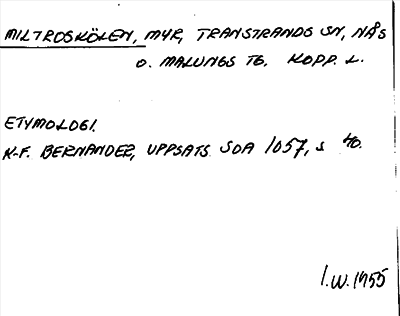 MILTROSKÖLEN, MYR, TRANSTRANDS SN, NÅS
O. MALUNGS TG. KOPP. L.
ETYMOLOGI.
K-F. BERNANDER, UPPSATS SOA 1057, S 40.
I.W. 1955